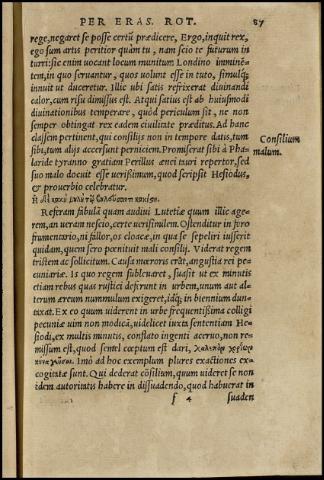 PER ERAS. ROT. 87
rege, negaret se posse certũ prædicere, Ergo, inquit rex,
ego sum artis peritior quàm tu, nam scio te futurum in
turri: sic enim uocant locum munitum Londino imminẽ-
tem, in quo seruantur, quos uolunt esse in tuto, simulq;
innuit ut duceretur. Illic ubi satis refrixerat diuinandi
calor, cum risu dimissus est. Atqui satius est ab huiusmodi
diuinationibus temperare, quòd periculum sit, ne non
semper obtingat rex eadem ciuilitate præditus. Ad hanc
classem pertinent, qui consilijs non in tempore datis, tum
sibi, tum alijs accersunt perniciem. Promiserat sibi à Pha-
laride tyranno gratiam Perillus ænei tauri repertor, sed
suo malo docuit esse uerißimum, quod scripsit Hesiodus,
& prouerbio celebratur.
Consilium
malum.
Referam fabulã quam audiui Lutetiæ quum illic age-
rem, an ueram nescio, certe uerisimilem. Ostenditur in foro
frumentario, ni fallor, os cloacæ, in qua se sepeliri iusserit
quidam, quem sero pœnituit mali consilij. Viderat regem
tristem ac sollicitum. Causa mœroris erãt, angustiæ rei pe-
cuniariæ. Is quo regem subleuaret, suasit ut ex minutis
etiam rebus quas rustici deferunt in urbem, unum aut al-
terum æreum nummulum exigeret, idq; in biennium dun-
taxat. Ex eo quum uiderent in urbe frequentißima colligi
pecuniæ uim non modicã, uidelicet iuxta sententiam He-
siodi, ex multis minutis, conflato ingenti aceruo, non re-
missum est, quod semel cœptum est dari,
Imò ad hoc exemplum plures exactiones ex-
cogitatæ sunt. Qui dederat cõsilium, quum uideret se non
idem autoritatis habere in dissuadendo, quod habuerat in
f 4 suaden